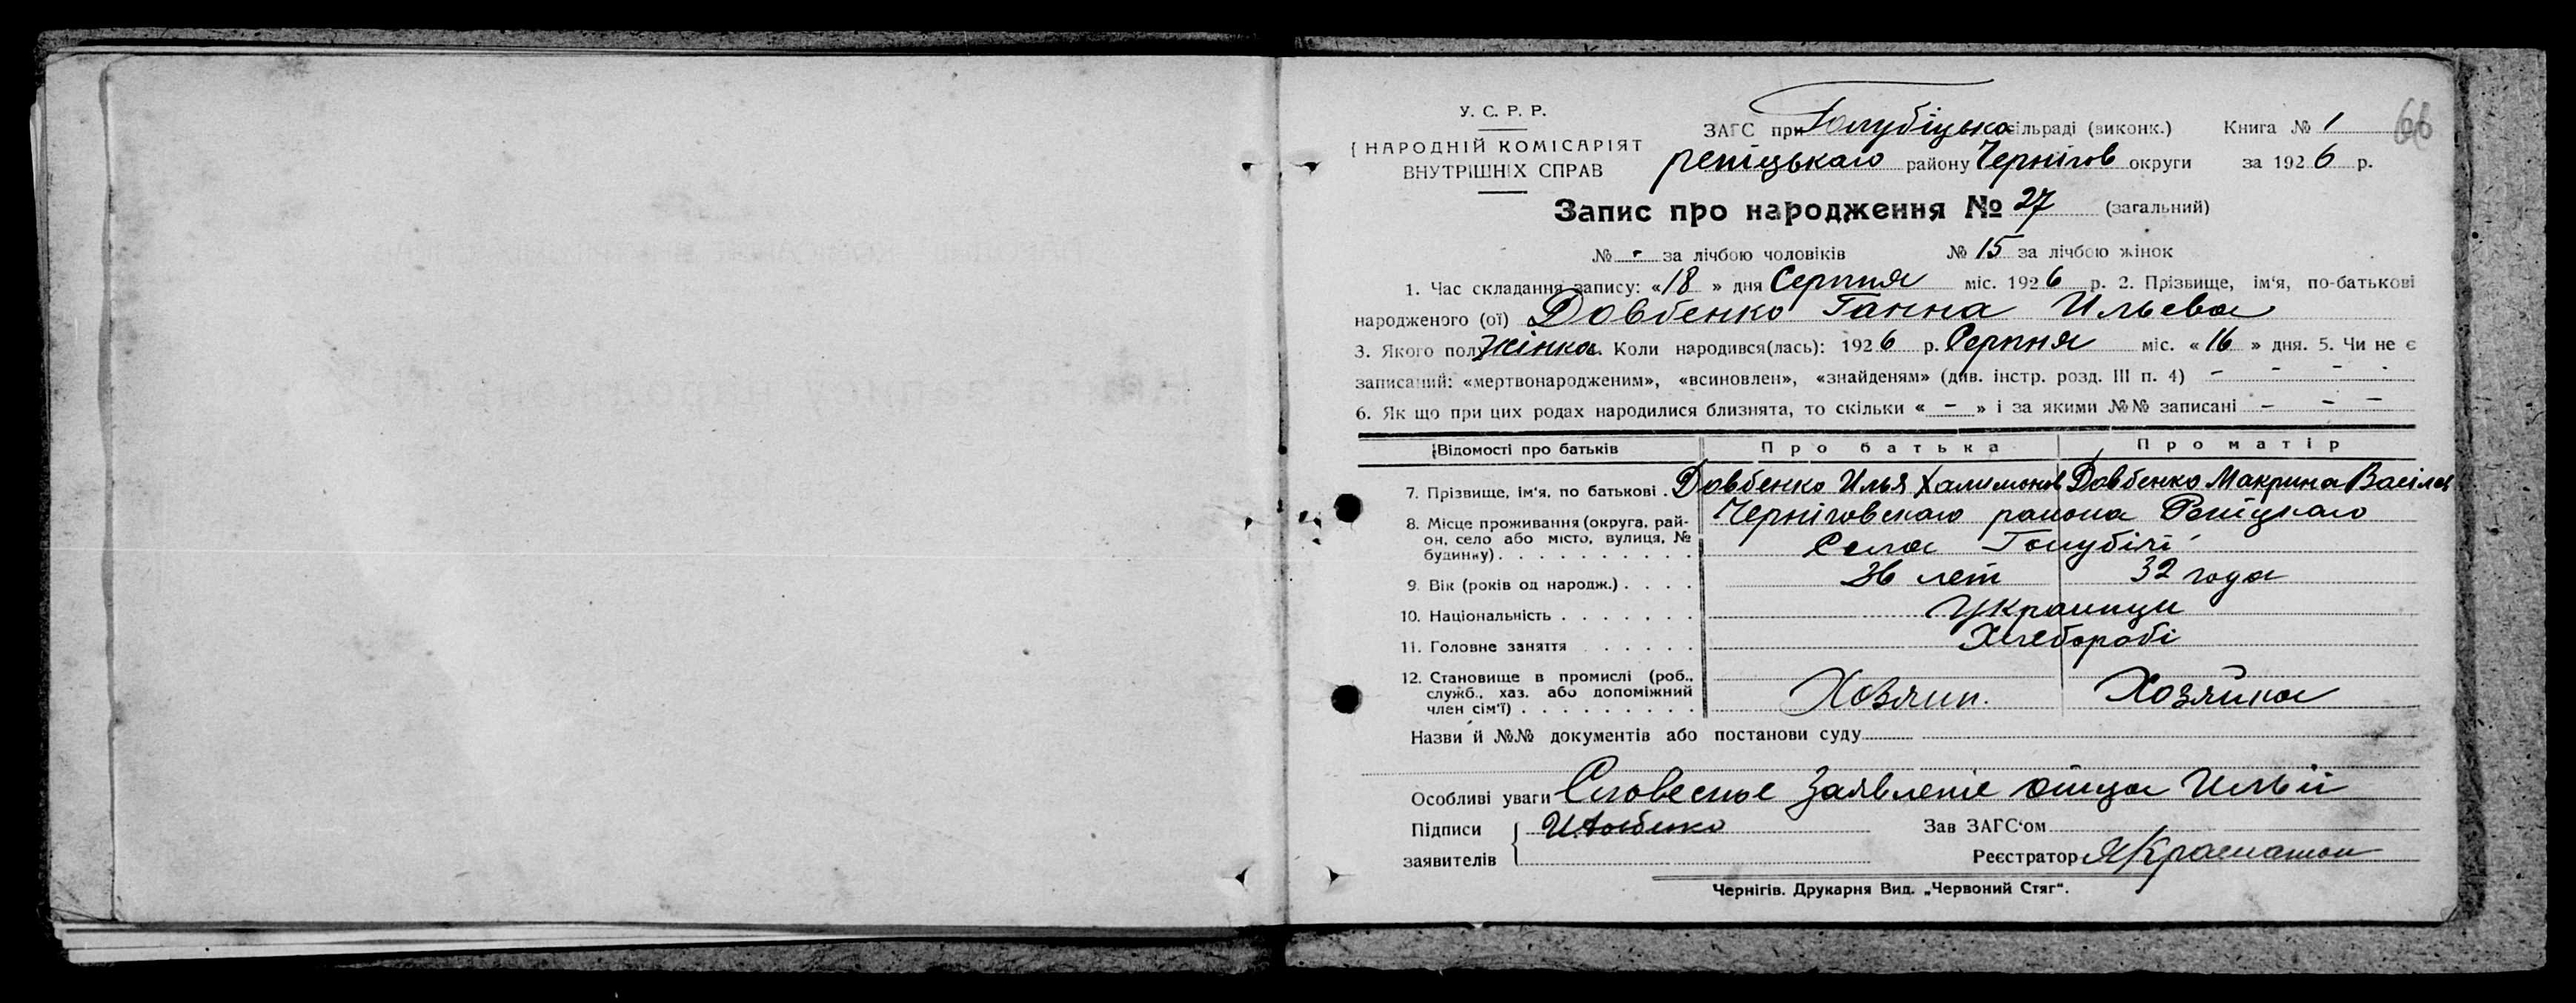 У. С. Р. Р.
НАРОДНІЙ КОМІСАРІЯТ
ВНУТРІШНІХ СПРАВ
ЗАГС при Голубіцька сільраді (виконк.) Книга № 1 66
репіцькаго району Чернігов округи за 1926 р.
Запис про народження № 27 (загальний)
№ - за лічбою чоловіків № 15 за лічбою жінок
1. Час складання запису: «18» дня Серпня міс. 1926 р. 2. Прізвище, ім‘я, по-батькові
народженого (ої) Довбенко Ганна Ильева
3. Якого полу Жінка. Коли народився(лась): 1926 р. Серпня міс. «16» дня. 5. Чи не є
записаний: «мертвонародженим», «всиновлен», «знайденям» (див. інстр. розд. III п. 4) - - - -
6. Як що при цих родах народилися близнята, то скільки « - » і за якими №№ записані - - -
Відомості про батьків Про батька Про матір
7. Прізвище, ім‘я, по батькові . Довбенко Илья Халимонов Довбенко Макрина Васілев
8. Місце проживання (округа, рай-
он, село або місто, вулиця, №
будинку) . . . . . . . . . .
Черніговскаго раиона Репіцкаго
Села Голубічі
9. Вік (років од народж.) . . . . 36 лет 32 года
10. Національність . . . . . . . Украинци
11. Головне заняття . . . . . Хлеборобі
12. Становище в промислі (роб.,
служб., хаз. або допоміжний
член сім‘ї) . . . . . . . . . Хозяин. Хозяйка
Назви й №№ документів або постанови суду
Особливі уваги Словесное Заявленіе отца Ильи
Підписи И Довбенко Зав ЗАГС‘ом
заявителів Реєстратор
Чернігів. Друкарня Вид. „Червоний Стяг“.